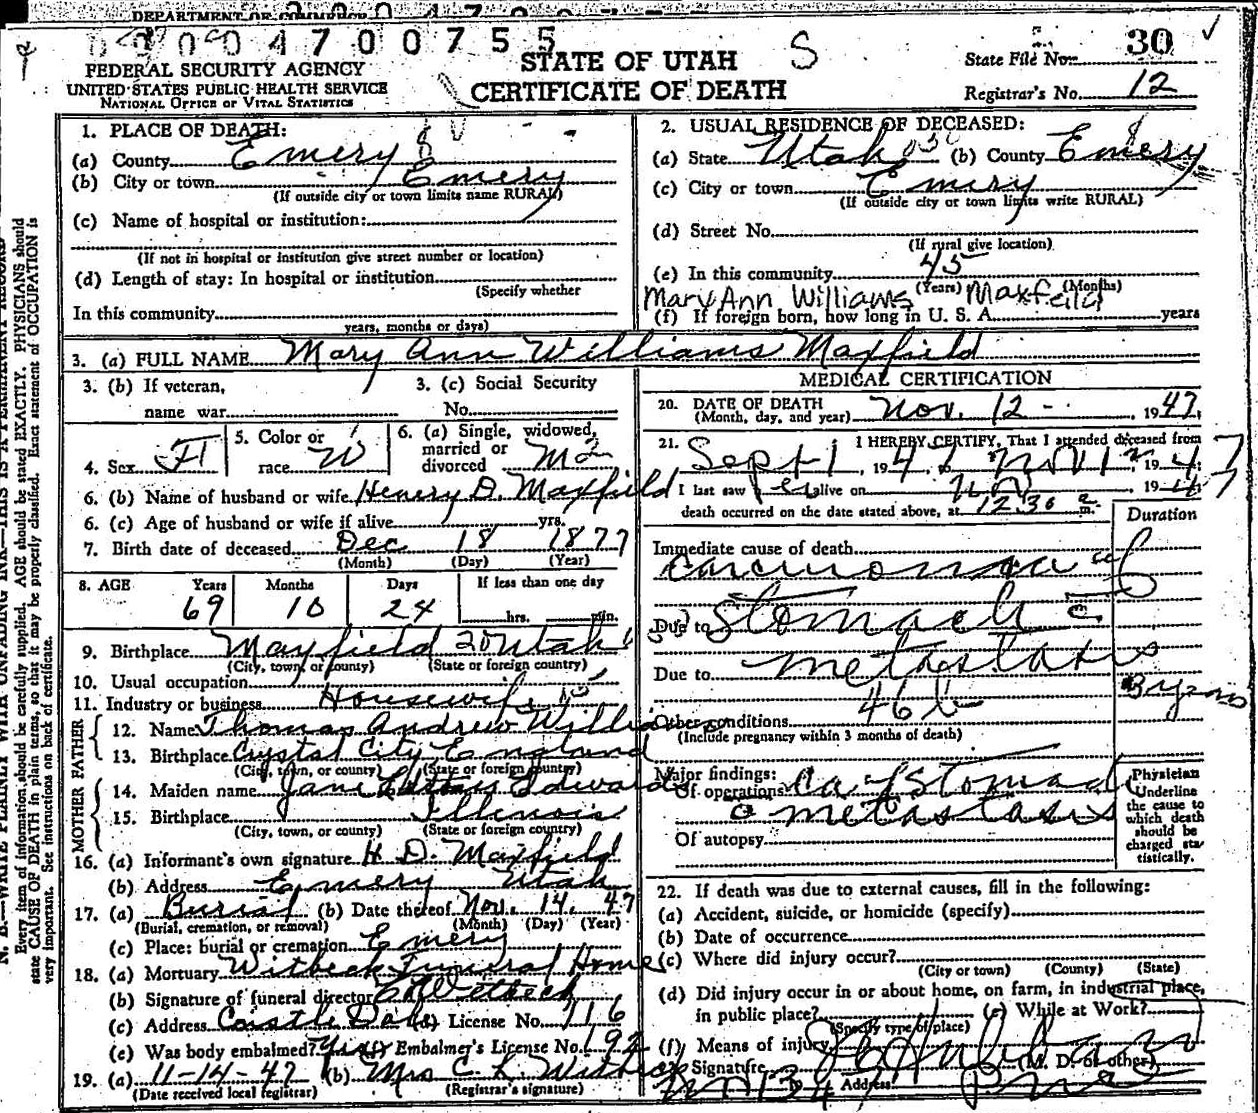 DEPARTMENT OF COMMERCE
0 0 0 4 7 0 0 7 5 5
STATE OF UTAH
CERTIFICATE OF DEATH
S
FEDERAL SECURITY AGENCY
UNITED STATES PUBLIC HEALTH SERVICE
NATIONAL OFFICE OF VITAL STATISTICS
State File No. 30
Registrar's No. 12
1. PLACE OF DEATH:
(a) County Emery
(b) City or town Emery
(If outside city or town limits name RURAL)
(c) Name of hospital or institution:
(If not in hospital or institution give street number or location)
(d) Length of stay: In hospital or institution
(Specify whether
In this community
years, months or days)
2. USUAL RESIDENCE OF DECEASED:
(a) State Utah (b) County Emery
(c) City or town Emery
(If outside city or town limits write RURAL)
(d) Street No.
(If rural give location)
(e) In this community 45
(Years) (Months)
Mary Ann Williams Maxfeild
(f) If foreign born, how long in U. S. A. years
3. (a) FULL NAME Mary Ann Williams Maxfield
3. (b) If veteran,
name war
3. (c) Social Security
No.
4. Sex F
5. Color or
race W
6. (a) Single, widowed,
married or
divorced M
6. (b) Name of husband or wife Henery D. Maxfield
6. (c) Age of husband or wife if alive yrs.
7. Birth date of deceased Dec 18 1877
(Month) (Day) (Year)
8. AGE Years Months Days If less than one day
69 10 24 hrs. min.
9. Birthplace Mayfield Utah
(City, town, or county) (State or foreign country)
10. Usual occupation
11. Industry or business Housewife
FATHER
12. Name Thomas Andrew Williams
13. Birthplace Crystal City England
(City, town, or county) (State or foreign country)
MOTHER
14. Maiden name Jane Edwards
15. Birthplace Illinois
(City, town, or county) (State or foreign country)
16. (a) Informant's own signature H D. Maxfield
(b) Address Emery Utah
17. (a) Burial (b) Date thereof Nov. 14, 47
(Burial, cremation, or removal) (Month) (Day) (Year)
(c) Place: burial or cremation Emery
18. (a) Mortuary Witbeck Funeral Home
(b) Signature of funeral director Witbeck
(c) Address Castle Dale License No. 116
(e) Was body embalmed? Yes (f) Embalmer's License No. 192
19. (a) 11-14-47 (b) Mrs C. K. Witbeck
(Date received local registrar) (Registrar's signature)
MEDICAL CERTIFICATION
20. DATE OF DEATH
(Month, day, and year) Nov. 12 - , 1947,
21. I HEREBY CERTIFY, That I attended deceased from
Sept 1, 1947 Nov 12, 1947
I last saw her alive on 1947
death occurred on the date stated above, at 12:30 a m.
Duration
Immediate cause of death
Carcinoma of
Due to Stomach c
Due to metastasis
46 b
Other conditions
(Include pregnancy within 3 months of death)
Major findings:
Of operations Ca of Stomach
c metastasis
Of autopsy
Physician
Underline
the cause to
which death
should be
charged sta-
tistically.
22. If death was due to external causes, fill in the following:
(a) Accident, suicide, or homicide (specify)
(b) Date of occurrence
(c) Where did injury occur?
(City or town) (County) (State)
(d) Did injury occur in or about home, on farm, in industrial place,
in public place? (e) While at Work?
(Specify type of place)
(f) Means of injury
Signature (M. D. or other)
Address
N. B.—WRITE PLAINLY WITH UNFADING INK—THIS IS A PERMANENT RECORD
Every item of information should be carefully supplied. AGE should be stated EXACTLY. PHYSICIANS should
state CAUSE OF DEATH in plain terms, so that it may be properly classified. Exact statement of OCCUPATION is
very important. See instructions on back of certificate.